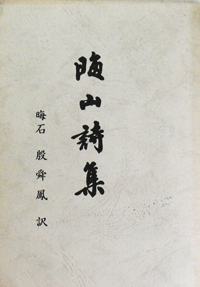 晦山詩集
晦石 殷舜鳳 訳